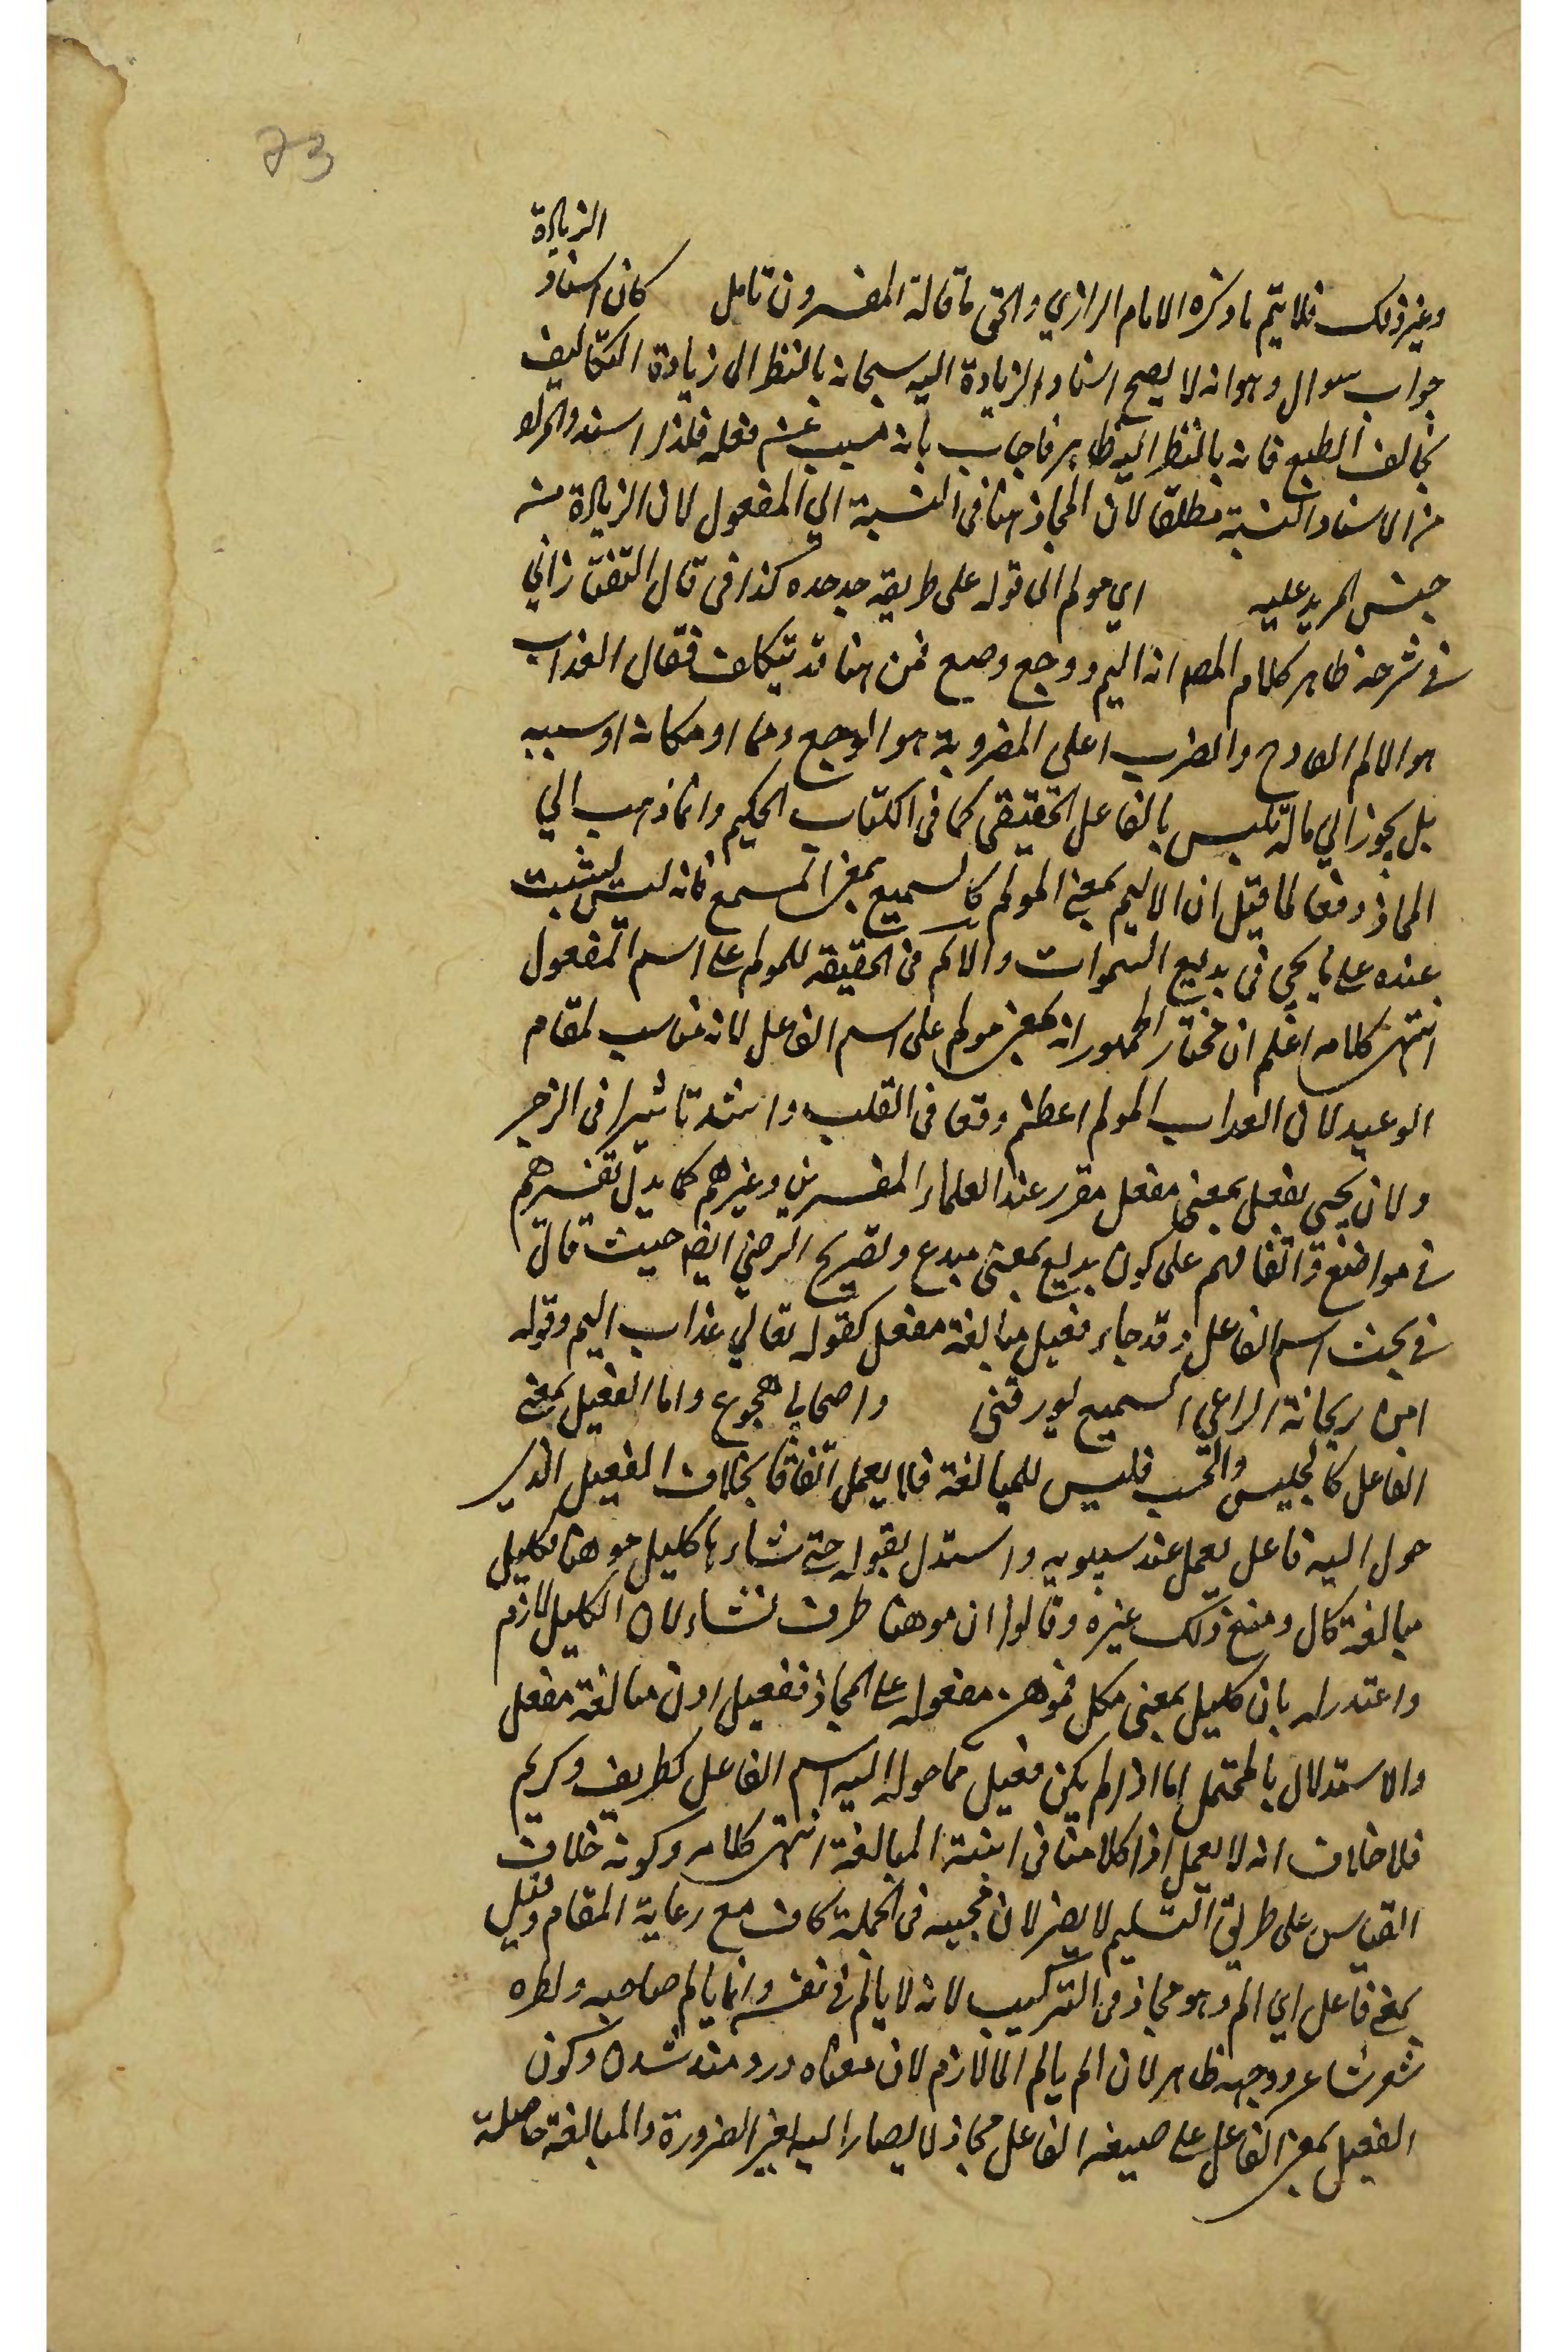 73
الزيادة
وغير ذلك فلا يتم ما ذكره الامام الرازي والحق ما قاله المفسرون تامل كان اسناد
جواب سوال وهو انه لا يصح اسناد الزيادة اليه سبحانه بالنظر الى زيادة التكاليف
بخالف الطبع فانه بالنظر اليه ظاهر فاجاب بانه مسبب عن فعله فلذا اسند والمراد
من الاسناد النسبة مطلقا لان المجاز هنا في النسبة الي المفعول لان الزيادة من
جنس المزيد عليه اي مولم الى قوله على طريقه جد جده كذا في قال التفتازاني
في شرحه ظاهر كلام المص انه اليم ووجع وصيع فمن هنا قد تتكلف فقال العذاب
هو الالم الفادح والضرب اعلى المضروبة هو الوجع ومما او مكانه او سببه
بل يجوز الي ما له تلبس بالفاعل الحقيقي كما في الكتاب الحكيم وانما ذهب الي
المجاز دفعا لما قيل ان الاليم بمعنى المولم كالسميع بمعنى المسمع فانه ليس يثبت
عنده على ما يجي في بديع السموات والالم في الحقيقه للمولم على اسم المفعول
انتهى كلامه اعلم ان مختار الجمهور انه بمعنى مولم على اسم الفاعل لانه مناسب لمقام
الوعيد لان العداب المولم اعظم وقعا في القلب واشد تاثيرا في الزجر
ولان يجي فعيل بمعنى مفعل مقرر عند العلماء المفسرين وغيرهم كما يدل تفسيرهم
في مواضع واتفاقهم على كون بديع بمعنى مبدع وتصريح الرضي ايضا حيث قال
في بحث اسم الفاعل وقد جاء فعيل مبالغة مفعل كقوله تعالي عذاب اليم وقوله
امن ريحانة الداعي السميع يورقني واصحابي هجوع واما الفعيل بمعنى
الفاعل كالجليس والحسب فليس للمبالغة فلا يعمل اتفاقا بخلاف الفعيل الذي
حول اليه فاعل يعمل عند سيبويه واستدل بقوله حتى شاءها كليل موهنا فكليل
مبالغة كال ومنع ذلك غيره وقالوا ان موهنا ظرف لشاء لان الكليل لازم
واعتذر له بان كليل بمعنى مكل فموهنا مفعوله على المجاز ففعيل اذن مبالغة مفعل
والاستدلال بالمحتمل اما اذا لم يكن فعيل مما حول اليه اسم الفاعل كظريف وكريم
فلا خلاف انه لا يعمل اذ كلامنا في ابنية المبالغة انتهى كلامه وكونه خلاف
القياس على طريق التسليم لا يضر لان مجيه في الجملة كاف مع رعاية المقام وقيل
بمعنى فاعل اي الم وهو مجاز في التركيب لانه لا يالم في نفسه وانما يالم صاحبه ونظره
شعر شاعر ووجهه ظاهر لان الم يالم الما لازم لان معناه دردمند شدن وكون
الفعيل بمعنى الفاعل على صيغه الفاعل مجاز لا يصار اليه لغير الضرورة والمبالغة حاصلة